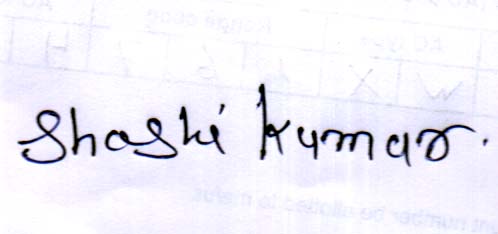 Shashi Kumar.